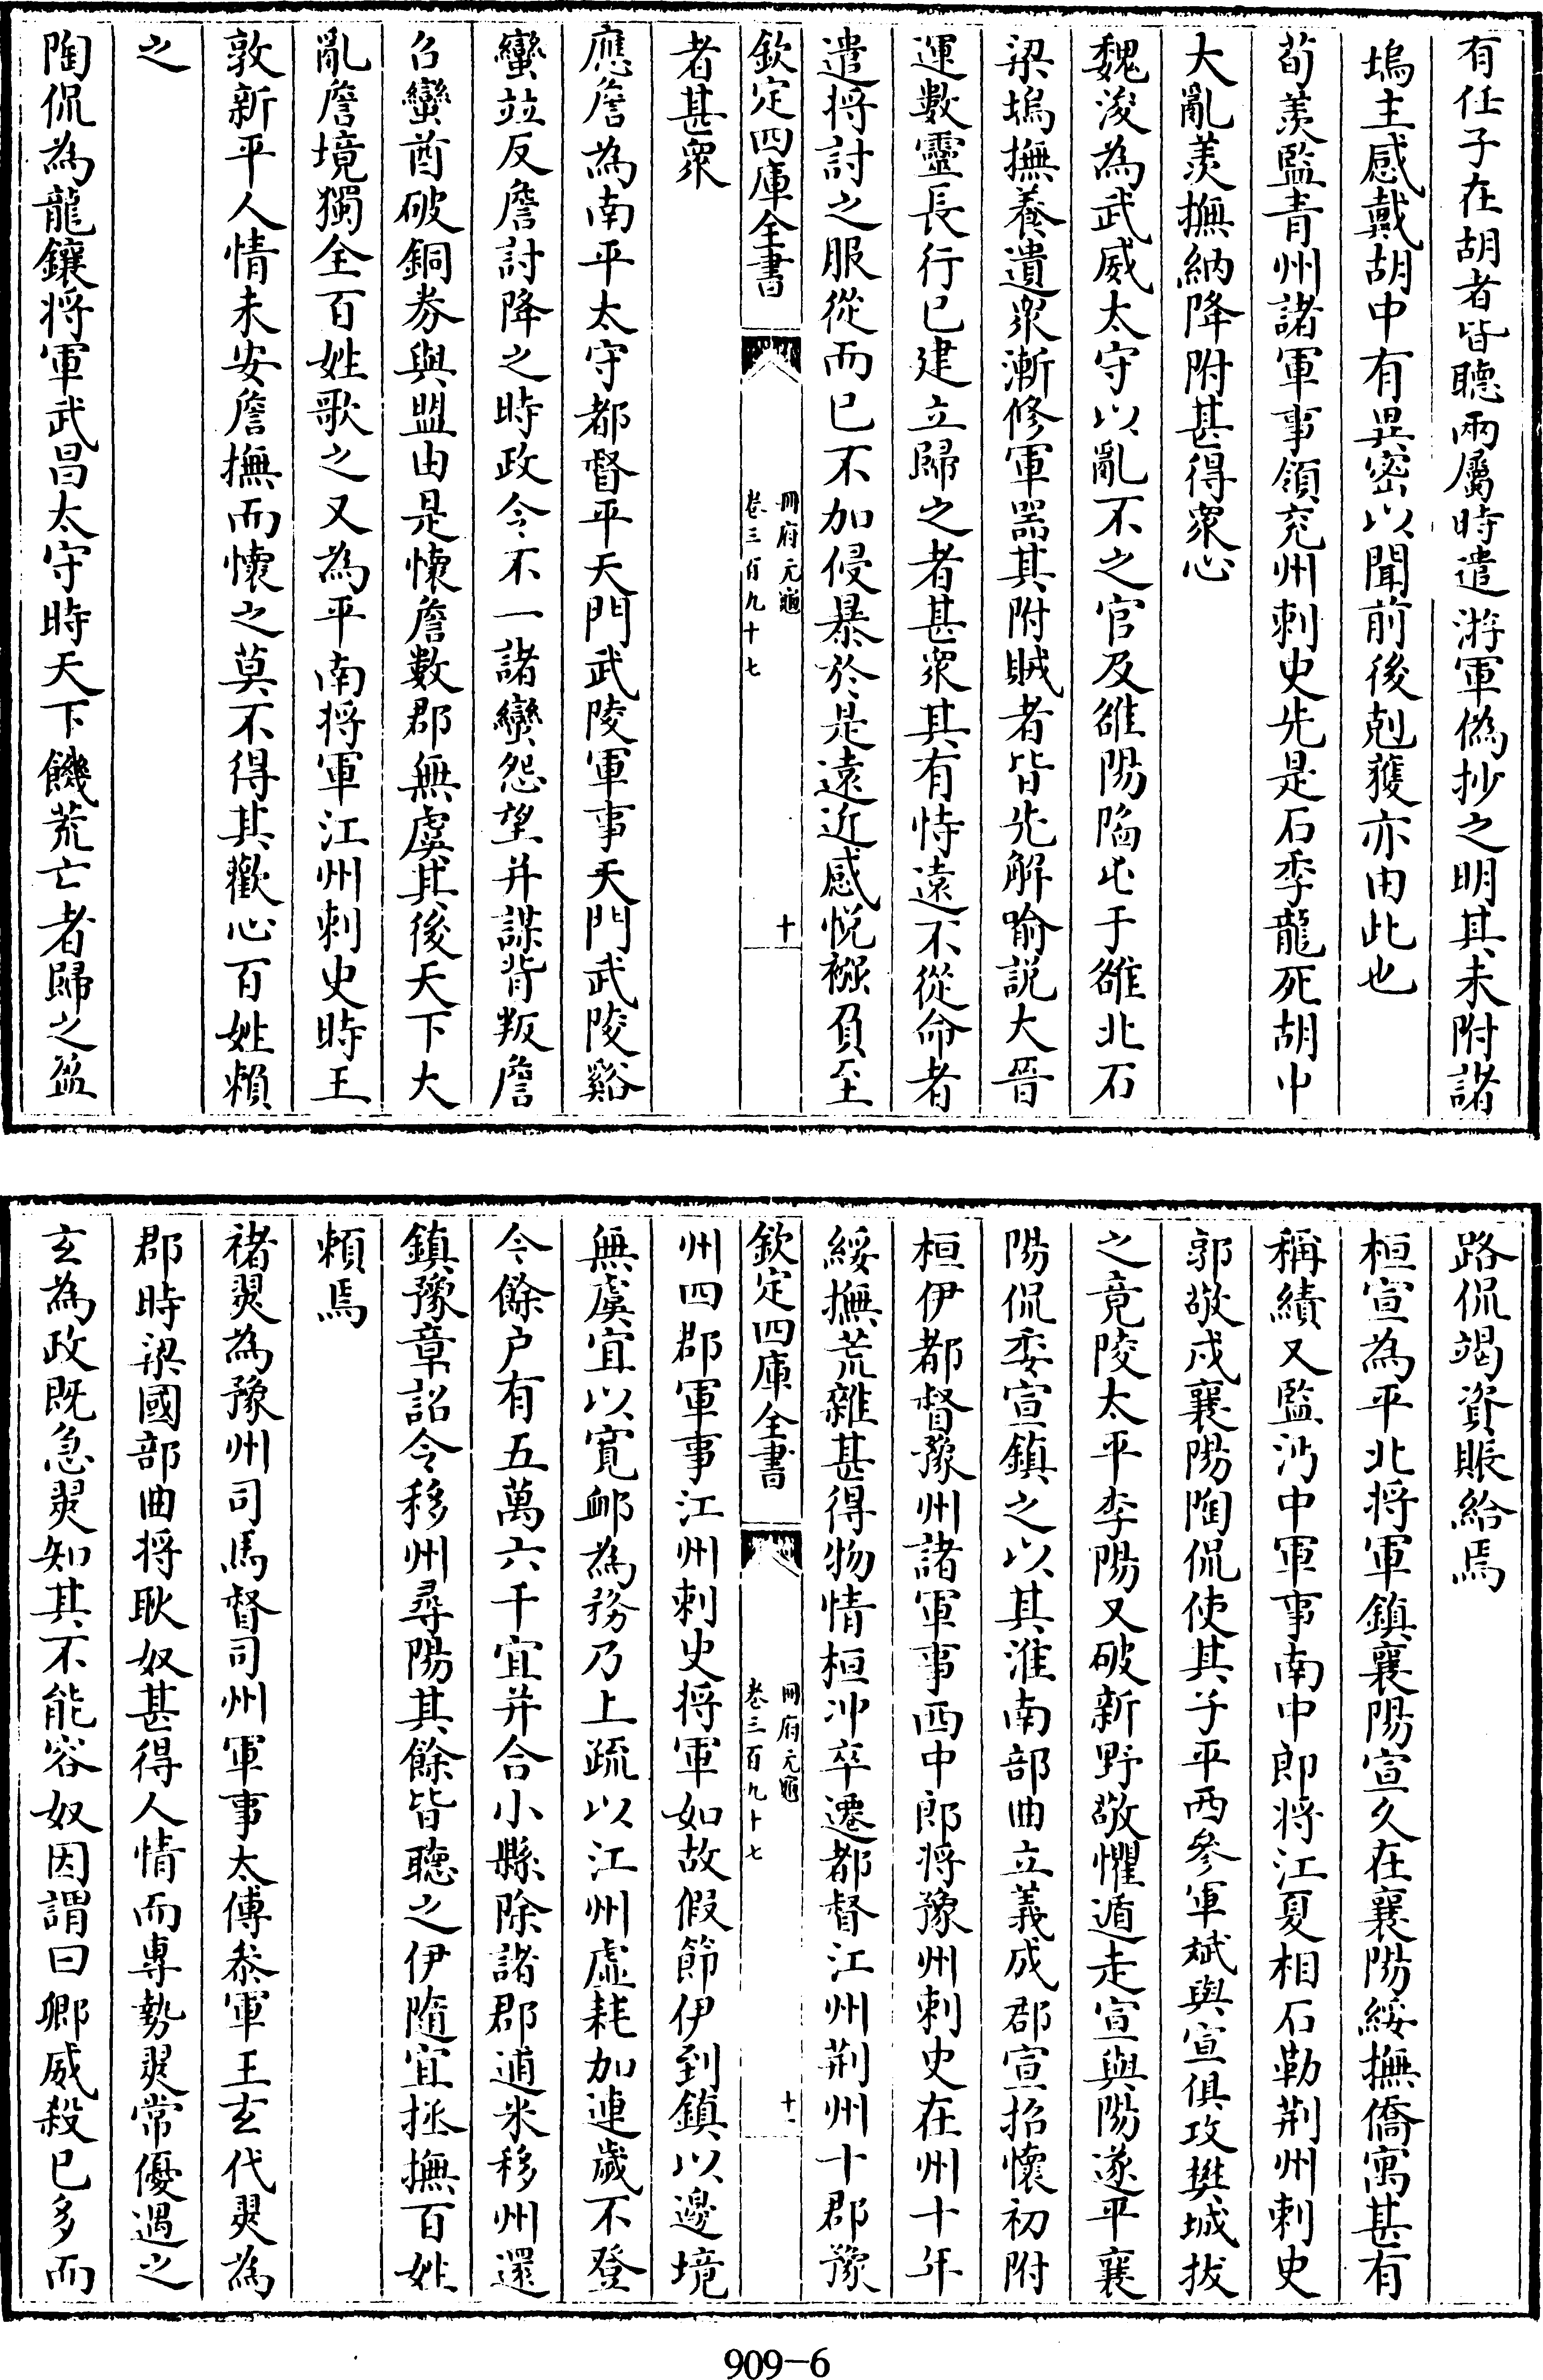 有任子在胡者皆聽兩屬時遣游軍偽抄之明其未附諸
塢主感戴胡中有異密以聞前後剋獲亦由此也
荀羨監青州諸軍事領兖州刺史先是石季龍死胡中
大亂羨撫納降附甚得衆心
魏浚為武威太守以亂不之官及雒陽陷屯于雒北石
梁塢撫養遺衆漸修軍器其附賊者皆先解喻説大晉
運數靈長行已建立歸之者甚衆其有恃遠不從命者
遣将討之服從而已不加侵暴於是遠近感悦襁負至
欽定四庫全書
冊府元龜
卷三百九十七
十
者甚衆
應詹為南平太守都督平天門武陵軍事天門武陵谿
蠻竝反詹討降之時政令不一諸蠻怨望并謀背叛詹
召蠻酋破銅券與盟由是懷詹數郡無虞其後天下大
亂詹境獨全百姓歌之又為平南将軍江州刺史時王
敦新平人情未安詹撫而懷之莫不得其歡心百姓賴
之
陶侃為龍鑲将軍武昌太守時天下饑荒亡者歸之盈
路侃竭資賑給焉
桓宣為平北将軍鎮襄陽宣久在襄陽綏撫僑寓甚有
稱績又監沔中軍事南中郎将江夏相石勒荆州刺史
郭敬戍襄陽陶侃使其子平西參軍斌與宣俱攻樊城拔
之竟陵太平李陽又破新野敬懼遁走宣與陽遂平襄
陽侃委宣鎮之以其淮南部曲立義成郡宣招懷初附
桓伊都督豫州諸軍事西中郎将豫州刺史在州十年
綏撫荒雜甚得物情桓冲卒遷都督江州荆州十郡豫
欽定四庫全書
冊府元龜
卷三百九十七
十一
州四郡軍事江州刺史将軍如故假節伊到鎮以邊境
無虞宜以寛䘏為務乃上疏以江州虚耗加連歲不登
今餘户有五萬六千宜并合小縣除諸郡逋米移州還
鎮豫章詔令移州尋陽其餘皆聽之伊隨宜拯撫百姓
賴焉
褚䂮為豫州司馬督司州軍事太傅叅軍王玄代䂮為
郡時梁國部曲将耿奴甚得人情而專勢䂮常優遇之
玄為政既急䂮知其不能容奴因謂曰卿威殺已多而
909-6